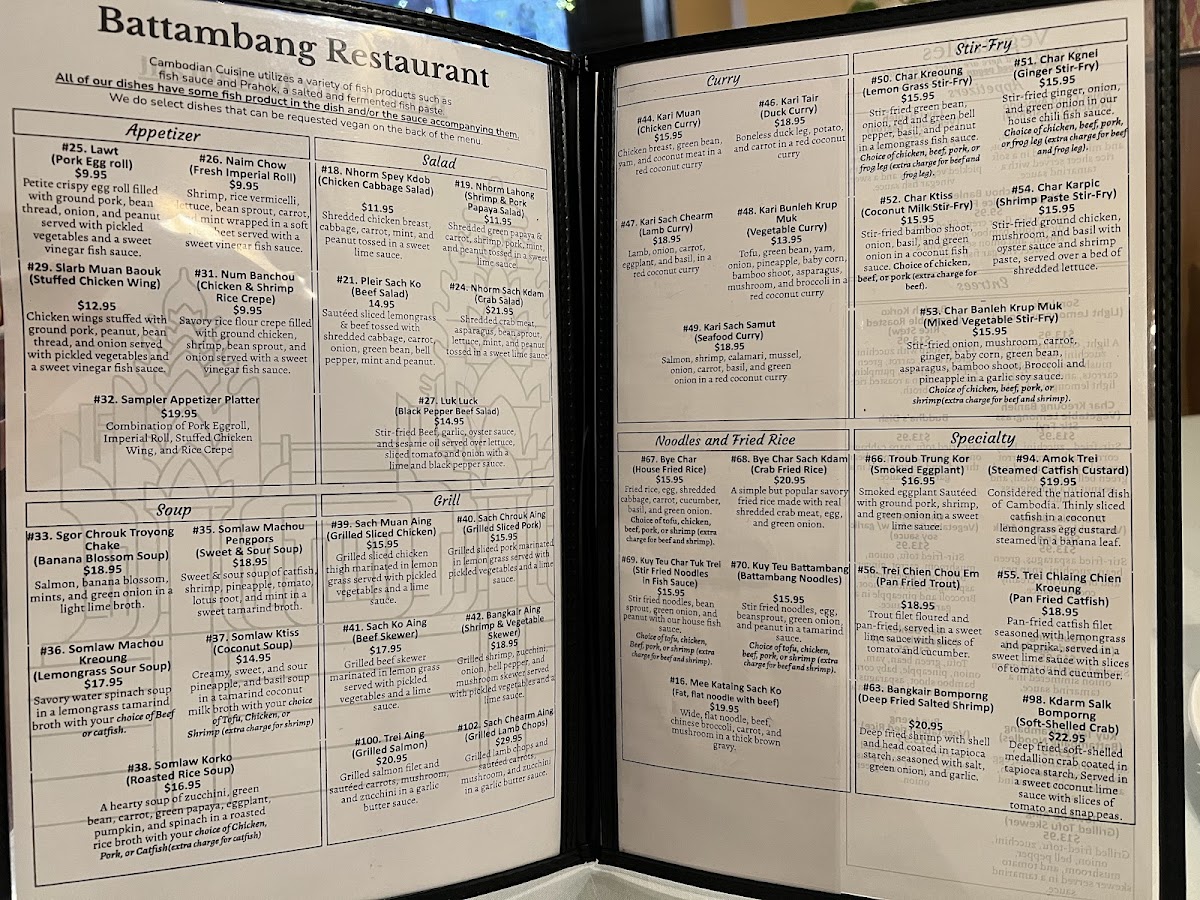 Battambang Restaurant
Cambodian Cuisine utilizes a variety of fish products such as
fish sauce and Prahok, a salted and fermented fish paste.
All of our dishes have some fish product in the dish and/or the sauce accompanying them.
We do select dishes that can be requested vegan on the back of the menu.
Appetizer
#25. Lawt
(Pork Egg roll)
$9.95
Petite crispy egg roll filled
with ground pork, bean
thread, onion, and peanut
served with pickled
vegetables and a sweet
vinegar fish sauce.
#26. Naim Chow
(Fresh Imperial Roll)
$9.95
Shrimp, rice vermicelli,
lettuce, bean sprout, carrot,
mint wrapped in a soft
sheet served with a
sweet vinegar fish sauce.
#29. Slarb Muan Baouk
(Stuffed Chicken Wing)
$12.95
Chicken wings stuffed with
ground pork, peanut, bean
thread, and onion served
with pickled vegetables and
a sweet vinegar fish sauce.
#31. Num Banchou
(Chicken & Shrimp
Rice Crepe)
$9.95
Savory rice flour crepe filled
with ground chicken,
shrimp, bean sprout, and
onion served with a sweet
vinegar fish sauce.
#32. Sampler Appetizer Platter
$19.95
Combination of Pork Eggroll,
Imperial Roll, Stuffed Chicken
Wing, and Rice Crepe
Salad
#18. Nhorm Spey Kdob
(Chicken Cabbage Salad)
$11.95
Shredded chicken breast,
cabbage, carrot, mint, and
peanut tossed in a sweet
lime sauce.
#19. Nhorm Lahong
(Shrimp & Pork
Papaya Salad)
$11.95
Shredded green papaya &
carrot, shrimp, pork, mint,
and peanut tossed in a sweet
lime sauce.
#21. Pleir Sach Ko
(Beef Salad)
14.95
Sautéed sliced lemongrass
& beef tossed with
shredded cabbage, carrot,
onion, green bean, bell
pepper, mint and peanut.
#24. Nhorm Sach Kdam
(Crab Salad)
$21.95
Shredded crab meat,
asparagus, bean sprout,
lettuce, mint, and peanut
tossed in a sweet lime sauce.
#27. Luk Luck
(Black Pepper Beef Salad)
$14.95
Stir-fried Beef, garlic, oyster sauce,
and sesame oil served over lettuce,
sliced tomato and onion with a
lime and black pepper sauce.
Soup
#33. Sgor Chrouk Troyong
Chake
(Banana Blossom Soup)
$18.95
Salmon, banana blossom,
mints, and green onion in a
light lime broth.
#35. Somlaw Machou
Pengpors
(Sweet & Sour Soup)
$18.95
Sweet & sour soup of catfish,
shrimp, pineapple, tomato,
lotus root, and mint in a
sweet tamarind broth.
#36. Somlaw Machou
Kreoung
(Lemongrass Sour Soup)
$17.95
Savory water spinach soup
in a lemongrass tamarind
broth with your choice of Beef
or catfish.
#37. Somlaw Ktiss
(Coconut Soup)
$14.95
Creamy, sweet, and sour
pineapple, and basil soup
in a tamarind coconut
milk broth with your choice
of Tofu, Chicken, or
Shrimp (extra charge for shrimp)
#38. Somlaw Korko
(Roasted Rice Soup)
$16.95
A hearty soup of zucchini, green
bean, carrot, green papaya, eggplant,
pumpkin, and spinach in a roasted
rice broth with your choice of Chicken,
Pork, or Catfish(extra charge for catfish)
Grill
#39. Sach Muan Aing
(Grilled Sliced Chicken)
$15.95
Grilled sliced chicken
thigh marinated in lemon
grass served with pickled
vegetables and a lime
sauce.
#40. Sach Chrouk Aing
(Grilled Sliced Pork)
$15.95
Grilled sliced pork marinated
in lemongrass served with
pickled vegetables and a lime
sauce.
#41. Sach Ko Aing
(Beef Skewer)
$17.95
Grilled beef skewer
marinated in lemon grass
served with pickled
vegetables and a lime
sauce.
#42. Bangkair Aing
(Shrimp & Vegetable
Skewer)
$18.95
Grilled shrimp, zucchini,
onion, bell pepper, and
mushroom skewer served
with pickled vegetables and a
lime sauce.
#100. Trei Aing
(Grilled Salmon)
$20.95
Grilled salmon filet and
sautéed carrots, mushroom,
and zucchini in a garlic
butter sauce.
#102. Sach Chearm Aing
(Grilled Lamb Chops)
$29.95
Grilled lamb chops and
sautéed carrots,
mushroom, and zucchini
in a garlic butter sauce.
Curry
#44. Kari Muan
(Chicken Curry)
$15.95
Chicken breast, green bean,
yam, and coconut meat in a
red coconut curry
#46. Kari Tair
(Duck Curry)
$18.95
Boneless duck leg, potato,
and carrot in a red coconut
curry
#47. Kari Sach Chearm
(Lamb Curry)
$18.95
Lamb, onion, carrot,
eggplant, and basil, in a
red coconut curry
#48. Kari Bunleh Krup
Muk
(Vegetable Curry)
$13.95
Tofu, green bean, yam,
onion, pineapple, baby corn,
bamboo shoot, asparagus,
mushroom, and broccoli in a
red coconut curry
#49. Kari Sach Samut
(Seafood Curry)
$18.95
Salmon, shrimp, calamari, mussel,
onion, carrot, basil, and green
onion in a red coconut curry
Stir-Fry
#50. Char Kreoung
(Lemon Grass Stir-Fry)
$15.95
Stir-fried green bean,
onion, red and green bell
pepper, basil, and peanut
in a lemongrass fish sauce.
Choice of chicken, beef, pork, or
frog leg (extra charge for beef and
frog leg).
#51. Char Kgnei
(Ginger Stir-Fry)
$15.95
Stir-fried ginger, onion,
and green onion in our
house chili fish sauce.
Choice of chicken, beef, pork,
or frog leg (extra charge for beef
and frog leg).
#52. Char Ktiss
(Coconut Milk Stir-Fry)
$15.95
Stir-fried bamboo shoot,
onion, basil, and green
onion in a coconut fish
sauce. Choice of chicken,
beef, or pork (extra charge for
beef).
#54. Char Karpic
(Shrimp Paste Stir-Fry)
$15.95
Stir-fried ground chicken,
mushroom, and basil with
oyster sauce and shrimp
paste, served over a bed of
shredded lettuce.
#53. Char Banleh Krup Muk
(Mixed Vegetable Stir-Fry)
$15.95
Stir-fried onion, mushroom, carrot,
ginger, baby corn, green bean,
asparagus, bamboo shoot, Broccoli and
pineapple in a garlic soy sauce.
Choice of chicken, beef, pork, or
shrimp(extra charge for beef and shrimp).
Noodles and Fried Rice
#67. Bye Char
(House Fried Rice)
$15.95
Fried rice, egg, shredded
cabbage, carrot, cucumber,
basil, and green onion.
Choice of tofu, chicken,
beef, pork, or shrimp (extra
charge for beef and shrimp).
#68. Bye Char Sach Kdam
(Crab Fried Rice)
$20.95
A simple but popular savory
fried rice made with real
shredded crab meat, egg,
and green onion.
#69. Kuy Teu Char Tuk Trei
(Stir Fried Noodles
in Fish Sauce)
$15.95
Stir fried noodles, bean
sprout, green onion, and
peanut with our house fish
sauce.
Choice of tofu, chicken,
Beef, pork, or shrimp (extra
charge for beef and shrimp).
#70. Kuy Teu Battambang
(Battambang Noodles)
$15.95
Stir fried noodles, egg,
beansprout, green onion,
and peanut in a tamarind
sauce.
Choice of tofu, chicken,
beef, pork, or shrimp (extra
charge for beef and shrimp).
#16. Mee Kataing Sach Ko
(Fat, flat noodle with beef)
$19.95
Wide, flat noodle, beef,
chinese broccoli, carrot, and
mushroom in a thick brown
gravy.
Specialty
#66. Troub Trung Kor
(Smoked Eggplant)
$16.95
Smoked eggplant Sautéed
with ground pork, shrimp,
and green onion in a sweet
lime sauce.
#94. Amok Trei
(Steamed Catfish Custard)
$19.95
Considered the national dish
of Cambodia. Thinly sliced
catfish in a coconut
lemongrass egg custard
steamed in a banana leaf.
#56. Trei Chien Chou Em
(Pan Fried Trout)
$18.95
Trout filet floured and
pan-fried, served in a sweet
lime sauce with slices of
tomato and cucumber.
#55. Trei Chlaing Chien
Kroeung
(Pan Fried Catfish)
$18.95
Pan-fried catfish filet
seasoned with lemongrass
and paprika, served in a
sweet lime sauce with slices
of tomato and cucumber.
#63. Bangkair Bomporng
(Deep Fried Salted Shrimp)
$20.95
Deep fried shrimp with shell
and head coated in tapioca
starch, seasoned with salt,
green onion, and garlic.
#98. Kdarm Salk
Bomporng
(Soft-Shelled Crab)
$22.95
Deep fried soft-shelled
medallion crab coated in
tapioca starch, Served in
a sweet coconut lime
sauce with slices of
tomato and snap peas.